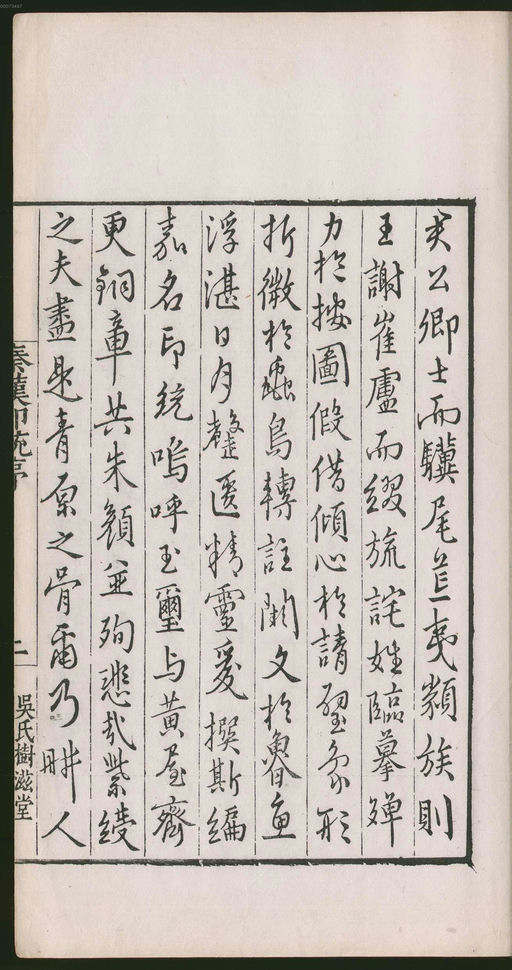 吏公卿士而驥尾苴夷類族則
王謝崔盧而綴旒詫姓臨摹殫
力於按圖假借傾心於請璽象形
折微於蟲鳥轉註闕文於魯魚
浮湛日月韞匵精靈爰撰斯編
嘉名印統嗚呼玉璽与黃屋齊
更銅章共朱顏並殉悲哉紫綬
之夫盡是青原之骨爾乃畊人
秦漢印統序
二
吳氏樹滋堂
00073487